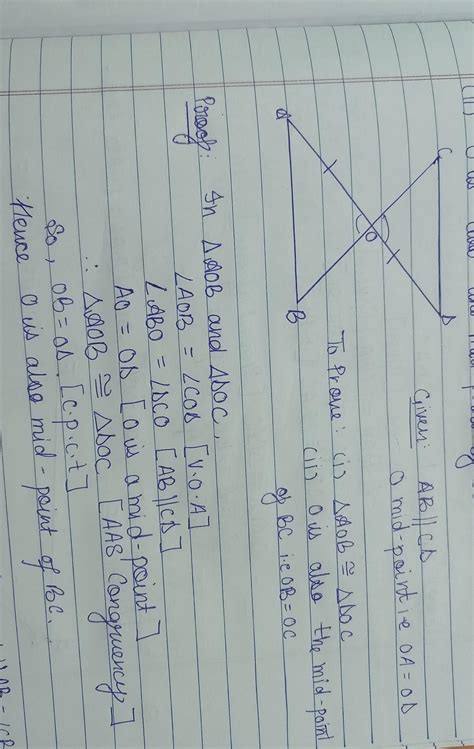 Given: AB||CD
O mid-point i.e OA=OD
To Prove: (i) △AOB ≅ △DOC
(ii) O is also the mid-point
of BC i.e OB=OC
C
D
O
A
B
Proof: In △AOB and △DOC,
∠AOB = ∠COD [V.O.A]
∠ABO = ∠DCO [AB||CD]
AO = OD [O is a mid-point]
∴ △AOB ≅ △DOC [AAS Congruency]
So, OB=OD [c.p.c.t]
Hence O is also mid-point of BC.